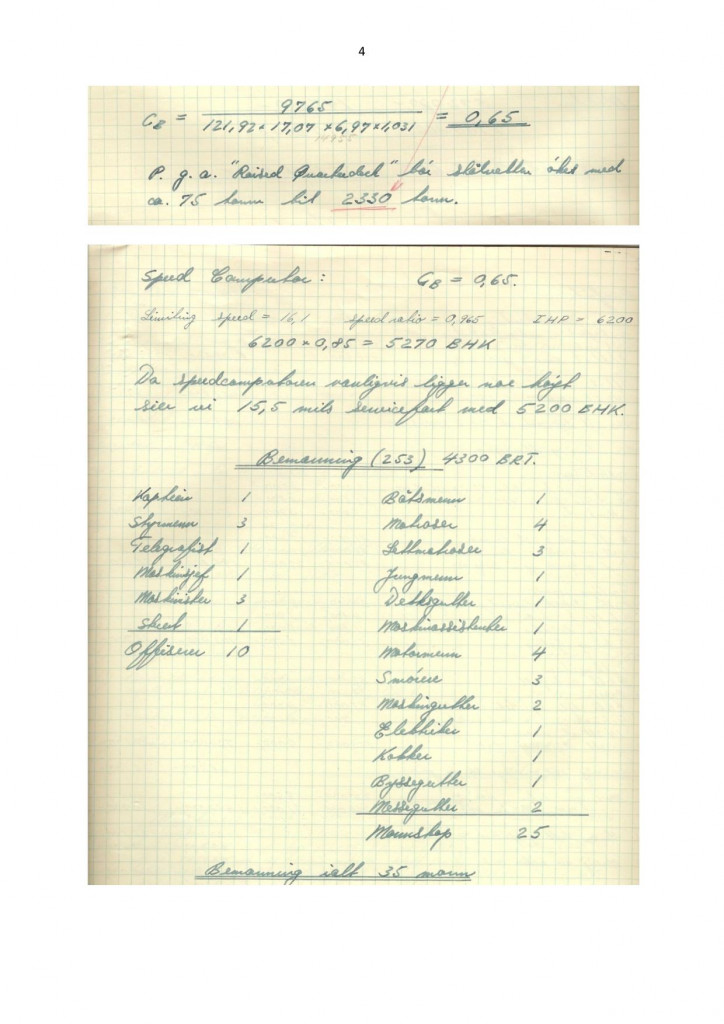 4
C_B = 9765 / 121,92 × 17,07 × 6,97 × 1,031 = 0,65
P. g. a. "Raised Quarterdeck" bör stålvekten ökes med
ca. 75 tonn til 2330 tonn.
Speed Computor: C_B = 0,65.
Limiting speed = 16,1 speed ratio = 0,965 IHP = 6200
6200 × 0,85 = 5270 BHK
Da speedcomputoren vanligvis ligger noe höyt
sier vi 15,5 mils servicefart med 5200 BHK.
Bemanning (253) 4300 BRT.
Kaptein 1 Båtsmenn 1
Styrmenn 3 Matroser 4
Telegrafist 1 Lettmatroser 3
Maskinsjef 1 Jungmenn 1
Maskinister 3 Dekksgutter 1
Stuert 1 Maskinassistenter 1
Offiserer 10 Motormenn 4
Smörere 3
Maskingutter 2
Elektriker 1
Kokker 1
Byssegutter 1
Messegutter 2
Mannskap 25
Bemanning ialt 35 mann